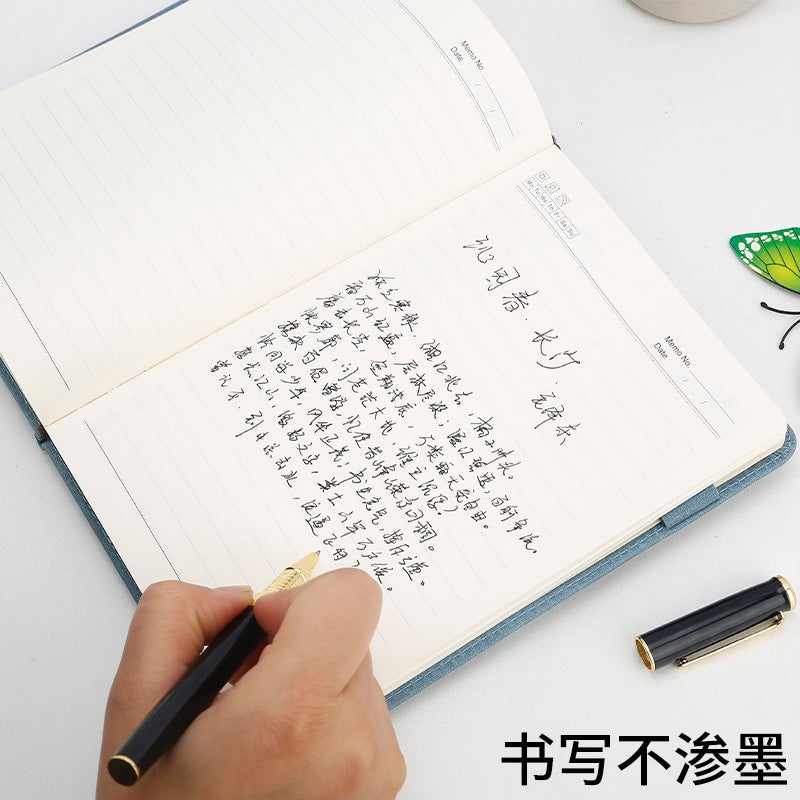 Memo No.
Date / /
Mo Tu We Th Fr Sa Su
Memo No.
Date / /
沁园春·长沙
·毛泽东
独立寒秋,湘江北去,橘子洲头。
看万山红遍,层林尽染,漫江碧透,百舸争流。
鹰击长空,鱼翔浅底,万类霜天竞自由。
怅寥廓,问苍茫大地,谁主沉浮?
携来百侣曾游,忆往昔峥嵘岁月稠。
恰同学少年,风华正茂,书生意气,挥斥方遒。
指点江山,激扬文字,粪土当年万户侯。
曾记否,到中流击水,浪遏飞舟?
书写不渗墨